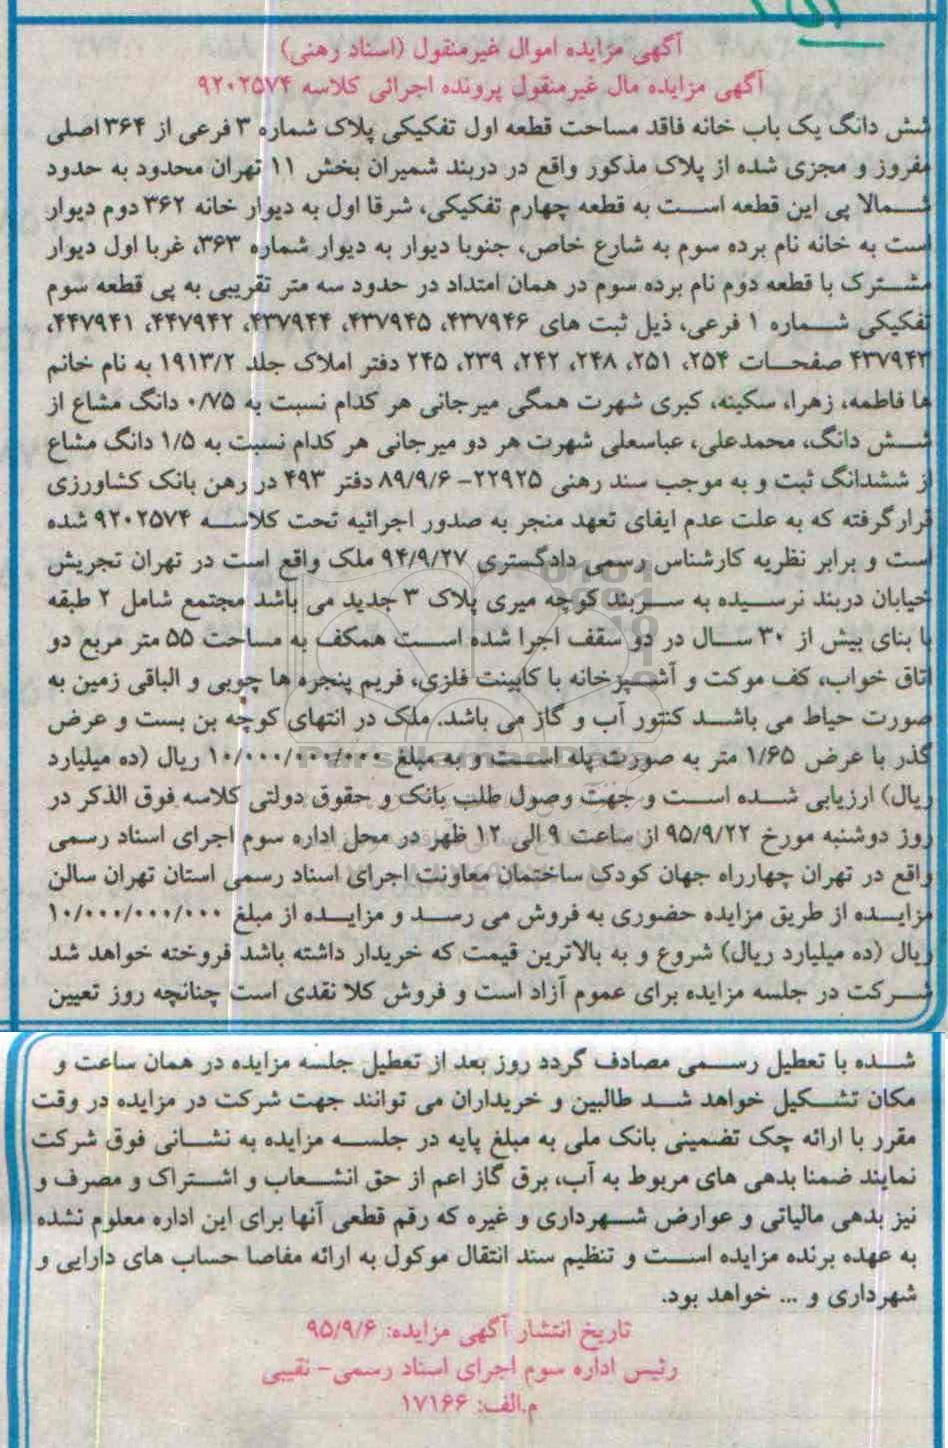 آگهی مزایده اموال غیرمنقول (اسناد رهنی)
آگهی مزایده مال غیرمنقول پرونده اجرائی کلاسه ۹۲۰۲۵۷۴
شش دانگ یک باب خانه فاقد مساحت قطعه اول تفکیکی پلاک شماره ۳ فرعی از ۳۶۴ اصلی
مفروز و مجزی شده از پلاک مذکور واقع در دربند شمیران بخش ۱۱ تهران محدود به حدود
شمالا پی این قطعه است به قطعه چهارم تفکیکی، شرقا اول به دیوار خانه ۳۶۲ دوم دیوار
است به خانه نام برده سوم به شارع خاص، جنوبا دیوار به دیوار شماره ۳۶۳، غربا اول دیوار
مشترک با قطعه دوم نام برده سوم در همان امتداد در حدود سه متر تقریبی به پی قطعه سوم
تفکیکی شماره ۱ فرعی، ذیل ثبت های ۴۳۷۹۴۶، ۴۳۷۹۴۵، ۴۳۷۹۴۴، ۴۴۷۹۴۲، ۴۴۷۹۴۱،
۴۳۷۹۴۳ صفحات ۲۵۴، ۲۵۱، ۲۴۸، ۲۴۲، ۲۳۹، ۲۴۵ دفتر املاک جلد ۱۹۱۳/۲ به نام خانم
ها فاطمه، زهرا، سکینه، کبری شهرت همگی میرجانی هر کدام نسبت به ۰/۷۵ دانگ مشاع از
شش دانگ، محمدعلی، عباسعلی شهرت هر دو میرجانی هر کدام نسبت به ۱/۵ دانگ مشاع
از ششدانگ ثبت و به موجب سند رهنی ۲۲۹۲۵- ۸۹/۹/۶ دفتر ۴۹۳ در رهن بانک کشاورزی
قرار گرفته که به علت عدم ایفای تعهد منجر به صدور اجرائیه تحت کلاسه ۹۲۰۲۵۷۴ شده
است و برابر نظریه کارشناس رسمی دادگستری ۹۴/۹/۲۷ ملک واقع است در تهران تجریش
خیابان دربند نرسیده به سربند کوچه میری پلاک ۳ جدید می باشد مجتمع شامل ۲ طبقه
با بنای بیش از ۳۰ سال در دو سقف اجرا شده است همکف به مساحت ۵۵ متر مربع دو
اتاق خواب، کف موکت و آشپزخانه با کابینت فلزی، فریم پنجره ها چوبی و الباقی زمین به
صورت حیاط می باشد کنتور آب و گاز می باشد. ملک در انتهای کوچه بن بست و عرض
گذر با عرض ۱/۶۵ متر به صورت پله است و به مبلغ ۱۰/۰۰۰/۰۰۰/۰۰۰ ریال (ده میلیارد
ریال) ارزیابی شده است و جهت وصول طلب بانک و حقوق دولتی کلاسه فوق الذکر در
روز دوشنبه مورخ ۹۵/۹/۲۲ از ساعت ۹ الی ۱۲ ظهر در محل اداره سوم اجرای اسناد رسمی
واقع در تهران چهارراه جهان کودک ساختمان معاونت اجرای اسناد رسمی استان تهران سالن
مزایده از طریق مزایده حضوری به فروش می رسد و مزایده از مبلغ ۱۰/۰۰۰/۰۰۰/۰۰۰
ریال (ده میلیارد ریال) شروع و به بالاترین قیمت که خریدار داشته باشد فروخته خواهد شد
شرکت در جلسه مزایده برای عموم آزاد است و فروش کلا نقدی است چنانچه روز تعیین
شده با تعطیل رسمی مصادف گردد روز بعد از تعطیل جلسه مزایده در همان ساعت و
مکان تشکیل خواهد شد طالبین و خریداران می توانند جهت شرکت در مزایده در وقت
مقرر با ارائه چک تضمینی بانک ملی به مبلغ پایه در جلسه مزایده به نشانی فوق شرکت
نمایند ضمنا بدهی های مربوط به آب، برق گاز اعم از حق انشعاب و اشتراک و مصرف و
نیز بدهی مالیاتی و عوارض شهرداری و غیره که رقم قطعی آنها برای این اداره معلوم نشده
به عهده برنده مزایده است و تنظیم سند انتقال موکول به ارائه مفاصا حساب های دارایی و
شهرداری و ... خواهد بود.
تاریخ انتشار آگهی مزایده: ۹۵/۹/۶
رئیس اداره سوم اجرای اسناد رسمی- نقیبی
م.الف: ۱۷۱۶۶
ParsNamadData